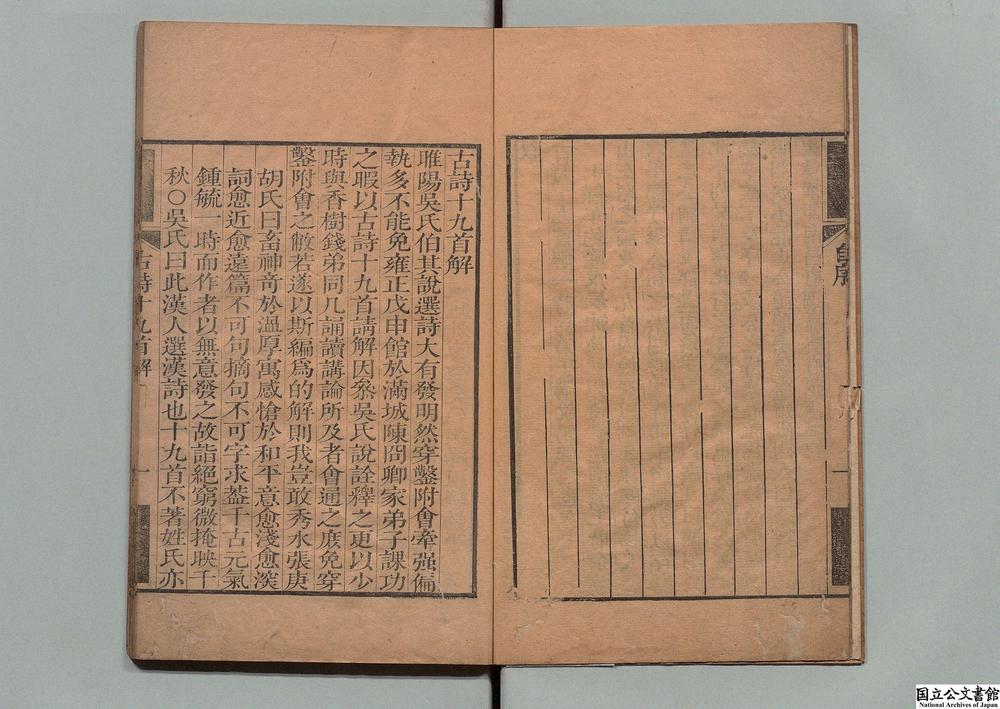 自序
古詩十九首解
睢陽吳氏伯其說選詩大有發明然穿鑿附會牽强偏
執多不能免雍正戊申館於滿城陳冏卿家弟子課功
之暇以古詩十九首請解因叅吳氏說詮釋之更以少
時與香樹錢弟同几誦讀講論所及者會通之庶免穿
鑿附會之敝若遂以斯編爲的解則我豈敢秀水張庚
胡氏曰畜神奇於溫厚寓感愴於和平意愈淺愈深
詞愈近愈遠篇不可句摘句不可字求葢千古元氣
鍾毓一時而作者以無意發之故詣絕窮微掩映千
秋○吳氏曰此漢人選漢詩也十九首不著姓氏亦
古詩十九首解
一
国立公文書館
National Archives of Japan